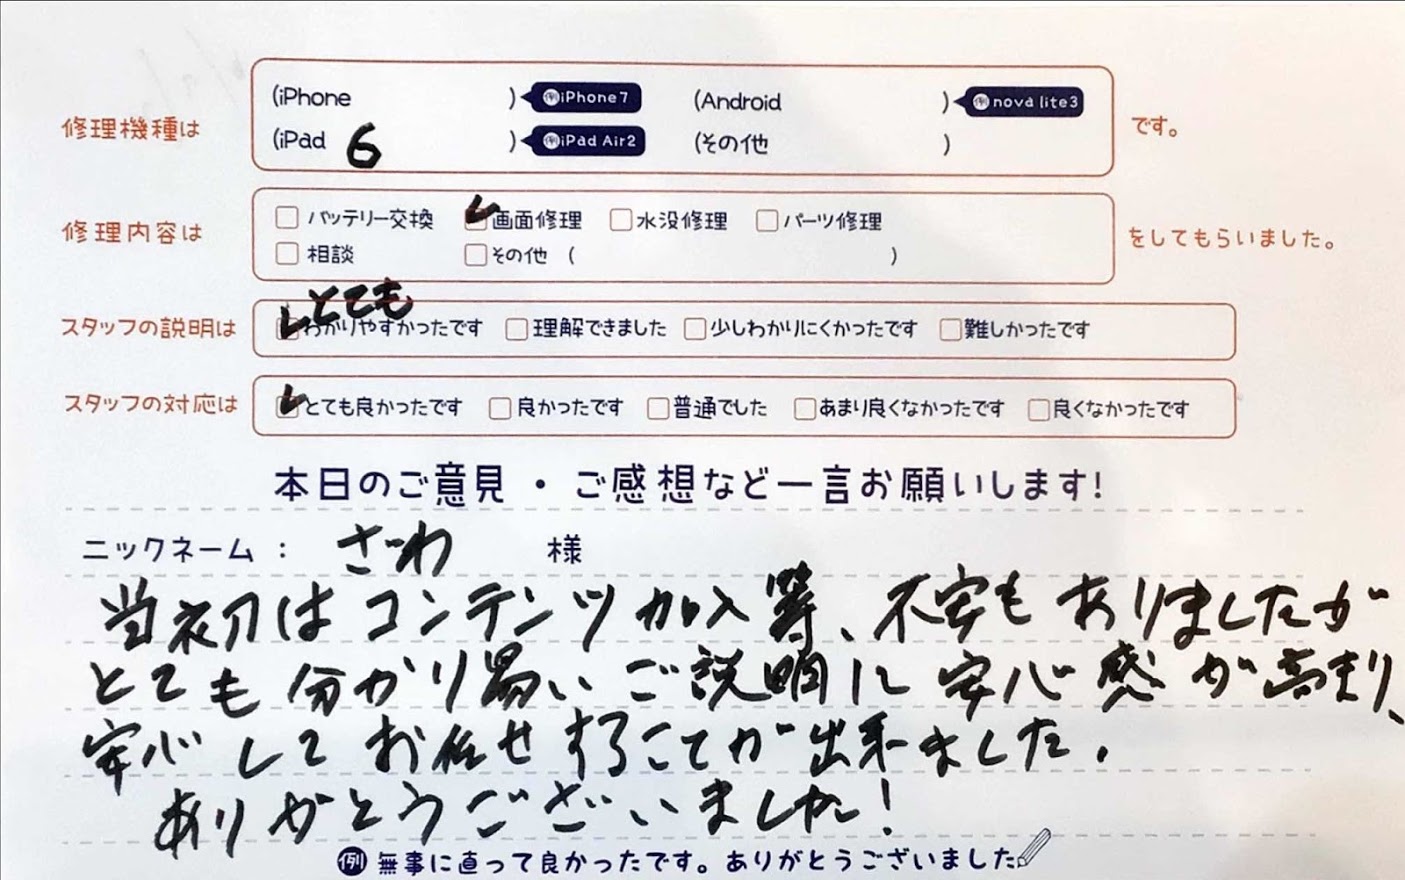 修理機種は (iPhone ) 例 iPhone7 (Android ) 例 nova lite3 です。
(iPad 6 ) 例 iPad Air2 (その他 )
修理内容は □バッテリー交換 ☑画面修理 □水没修理 □パーツ修理 をしてもらいました。
□相談 □その他 ( )
とても
スタッフの説明は ☑わかりやすかったです □理解できました □少しわかりにくかったです □難しかったです
スタッフの対応は ☑とても良かったです □良かったです □普通でした □あまり良くなかったです □良くなかったです
本日のご意見・ご感想など一言お願いします!
ニックネーム : さわ 様
当初はコンテンツ加入等、不安もありましたが
とても分かり易いご説明に安心感が高まり、
安心してお任せすることが出来ました.
ありがとうございました!
例 無事に直って良かったです。ありがとうございました